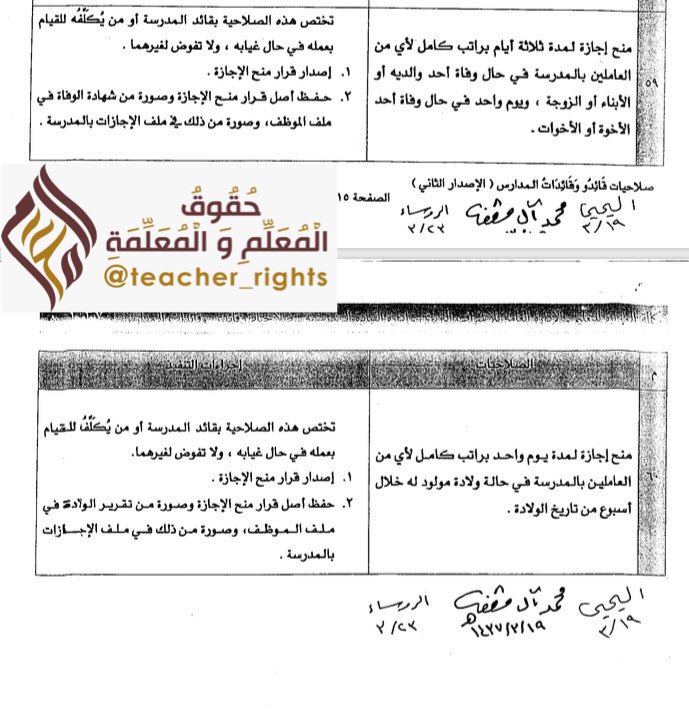 تختص هذه الصلاحية بقائد المدرسة أو من يُكلِّفُه للقيام
بعمله في حال غيابه ، ولا تفوض لغيرهما .
١. إصدار قرار منح الإجازة .
٢. حفظ أصل قرار منح الإجازة وصورة من شهادة الوفاة في
ملف الموظف، وصورة من ذلك في ملف الإجازات بالمدرسة .
٥٩
منح إجازة لمدة ثلاثة أيام براتب كامل لأي من
العاملين بالمدرسة في حال وفاة أحد والديه أو
الأبناء أو الزوجة ، ويوم واحد في حال وفاة أحد
الأخوة أو الأخوات .
صلاحيات قَائِدُو وَقَائِدَاتُ المدارس ( الإصدار الثاني )
الصفحة ١٥
اليحيى
٣/١٩
الرؤساء
٣/٢٣
حُقُوقُ
الْمُعَلِّمِ وَ الْمُعَلِّمَةِ
@teacher_rights
م
الصلاحيات
إجراءات التنفيذ
٦٠
منح إجازة لمدة يوم واحد براتب كامل لأي من
العاملين بالمدرسة في حالة ولادة مولود له خلال
أسبوع من تاريخ الولادة .
تختص هذه الصلاحية بقائد المدرسة أو من يُكلِّفُ للقيام
بعمله في حال غيابه ، ولا تفوض لغيرهما.
١. إصدار قرار منح الإجازة .
٢. حفظ أصل قرار منح الإجازة وصورة من تقرير الولادة في
ملف الموظف، وصورة من ذلك في ملف الإجازات
بالمدرسة .
اليحيى
٣/١٩
١٤٣٧/٣/١٩هـ
الرؤساء
٣/٢٣